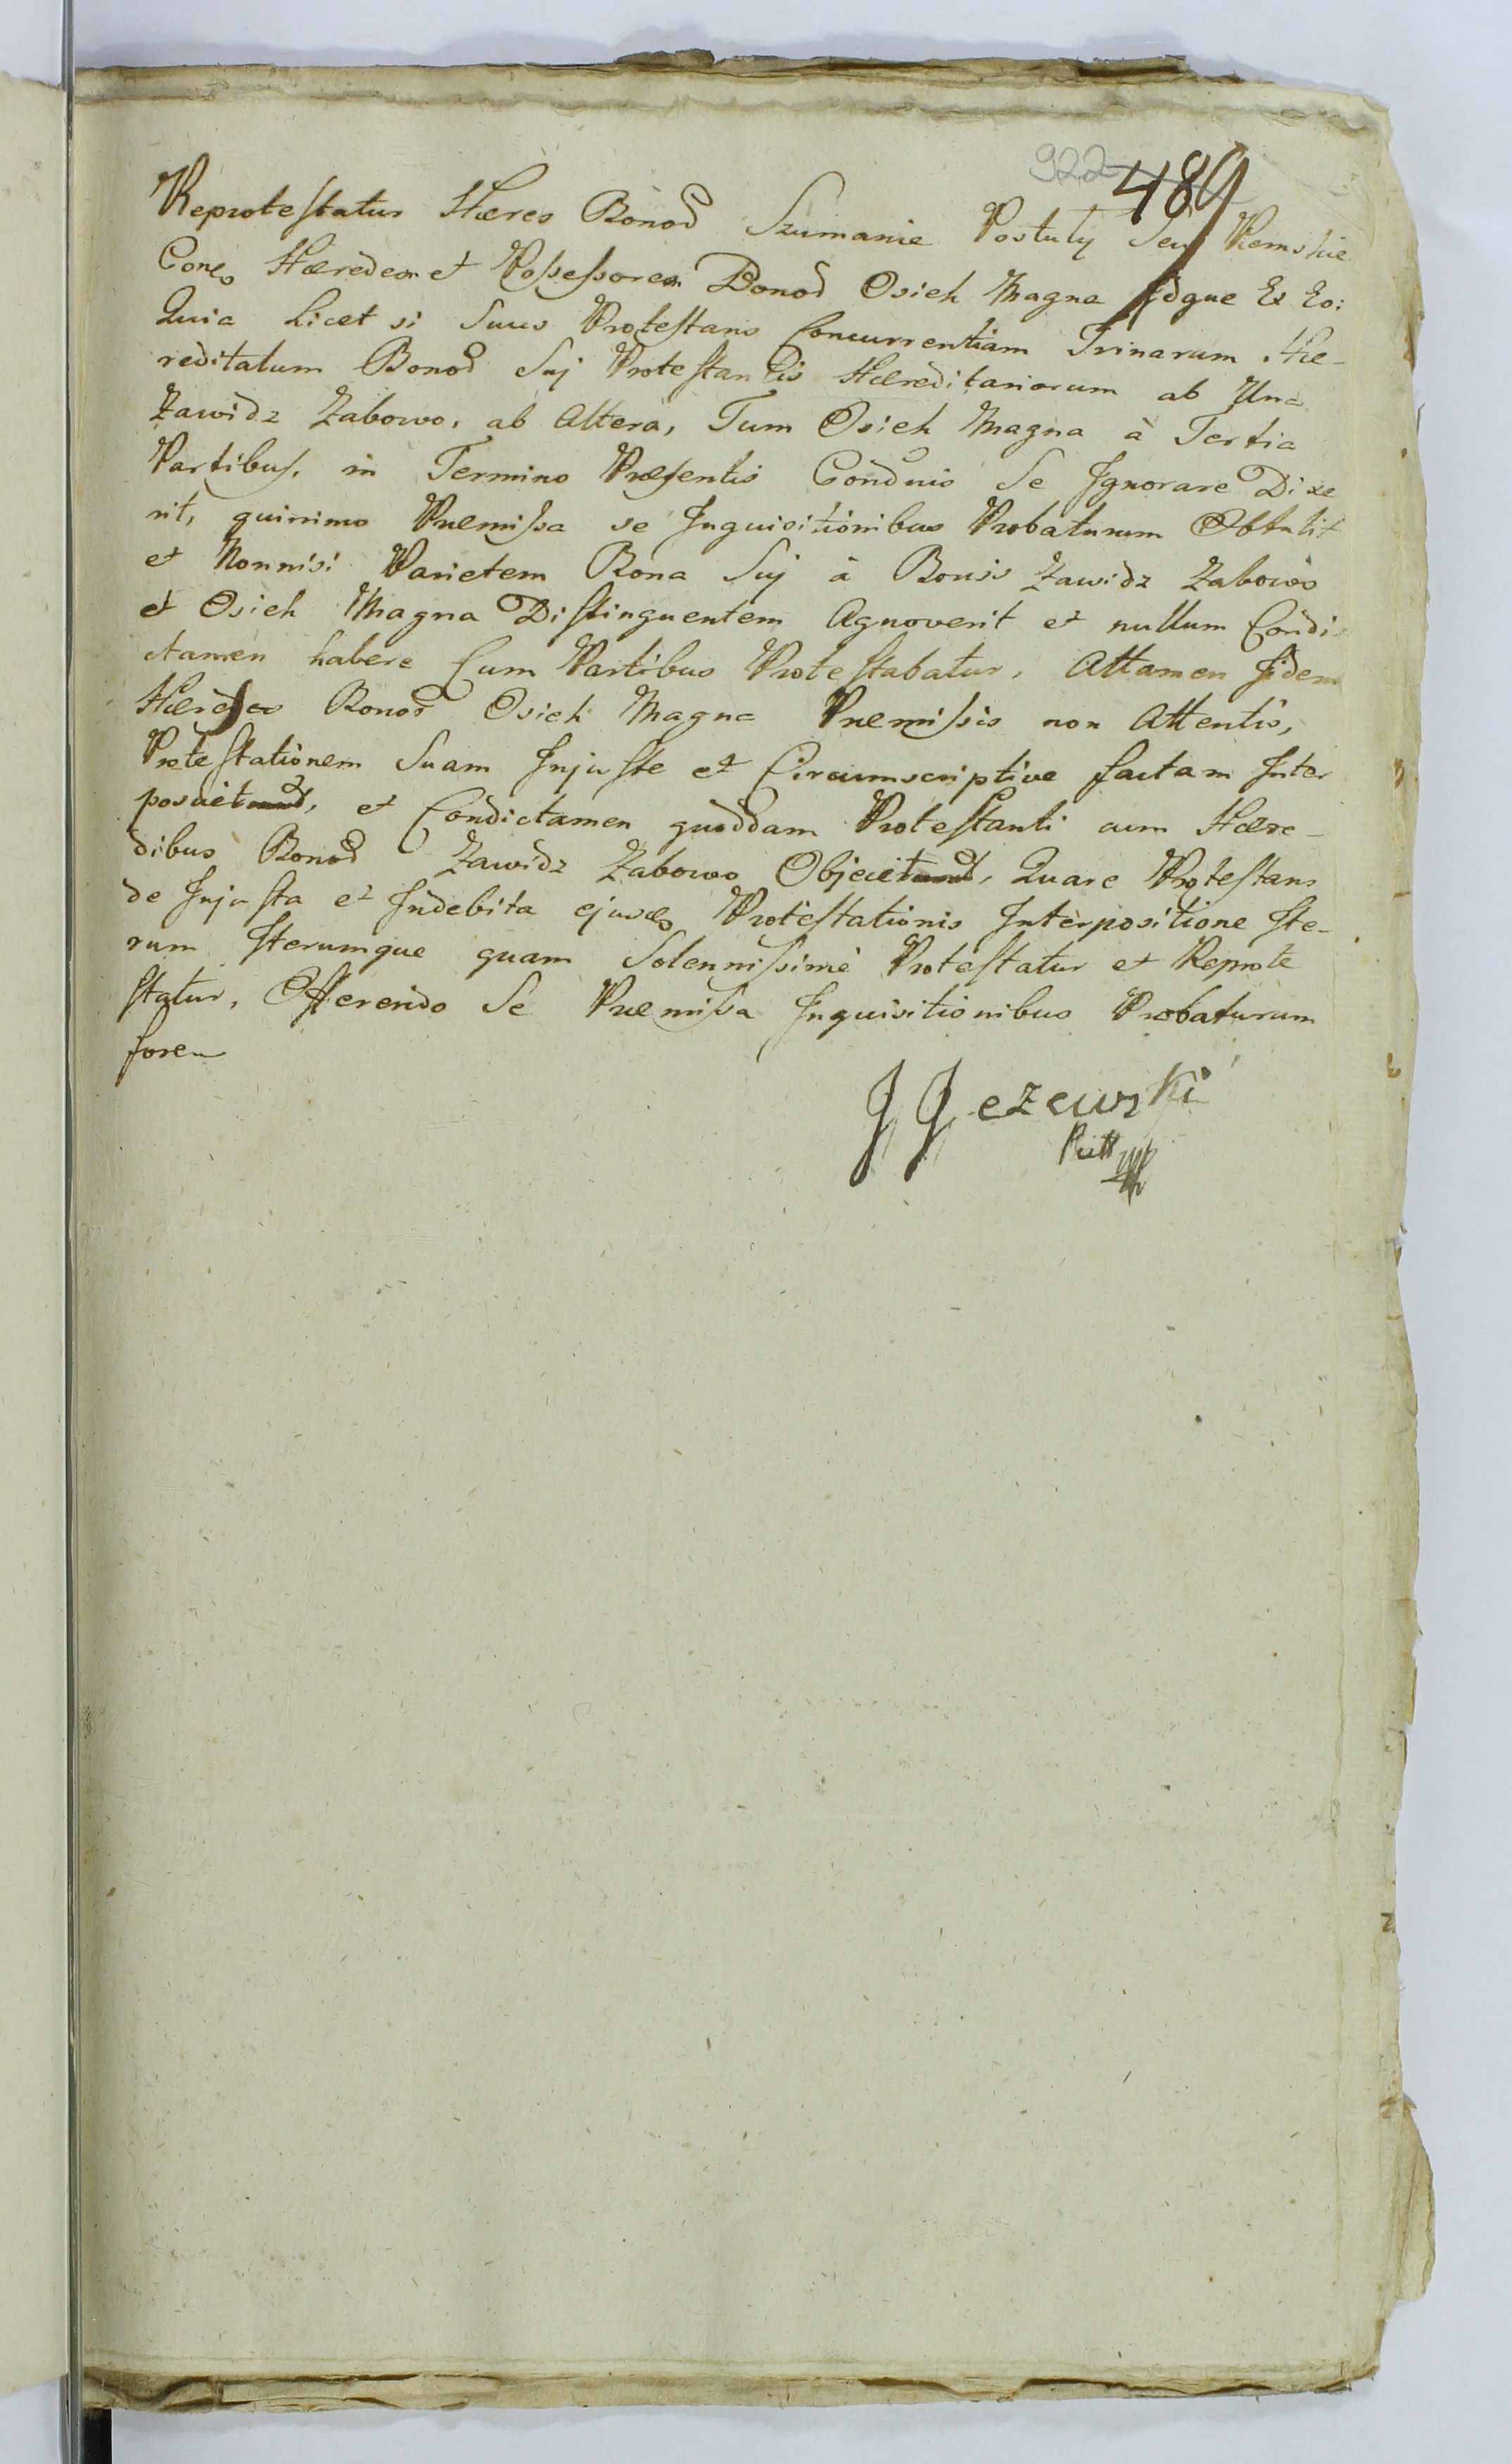 922 489
Reprotestatur Hæres Bonoꝝ Szumanie Postuly Seu Remskie
Hæredem et Possessorem Bonoꝝ Osiek Magna Idque Ex Eo:
Quia Licet si Suus Protestans Concurrentiam Trinarum Hæ-
reditatum Bonoꝝ Suj Protestantis Hæreditariorum ab Una
Zawidz Zabowo, ab Altera, Tum Osiek Magna à Tertia
Partibus, in Termino Præsentis Condnis Se Ignorare Dixe
rit, quinimo Præmissa se Inquisitionibus Probaturum Obtulit
et Nonnisi Parietem Bona Suj à Bonis Zawidz Zabowo
et Osiek Magna Distinguentem Agnoverit et nullum Condi-
ctamen habere Cum Partibus Protestabatur, Attamen Idem
Hæres Bonoꝝ Osiek Magna Præmissis non Attentis,
Protestationem Suam Injuste et Circumscriptive factam Inter
posuit, et Condictamen quoddam Protestanti cum Hære-
dibus Bonoꝝ Zawidz Zabowo Objecit, Quare Protestans
de Injusta et Indebita ejusd Protestationis Interpositione Ite-
rum Iterumque quam Solennissimè Protestatur et Reprote
statur, Offerendo Se Præmissa Inquisitionibus Probaturum
fore
J Jezewski